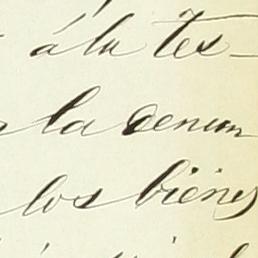 á la tes-
la denun
los bienes